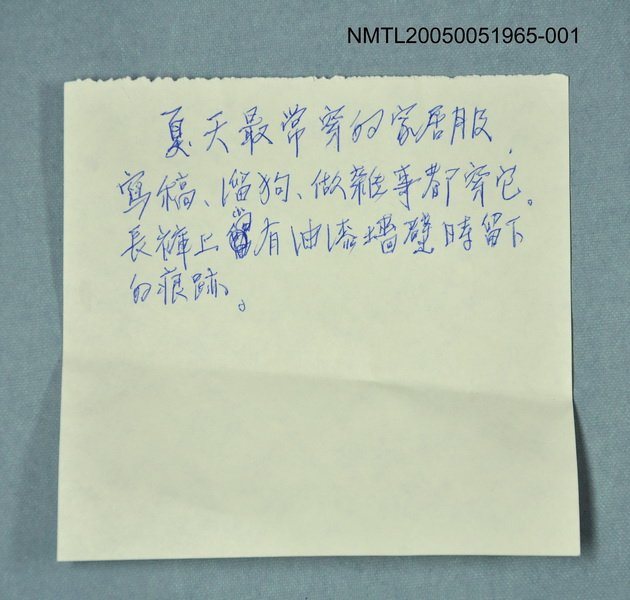 NMTL20050051965-001
夏天最常穿的家居服,
寫稿、溜狗、做雜事都穿它。
長褲上尚有油漆墻壁時留下
的痕跡。